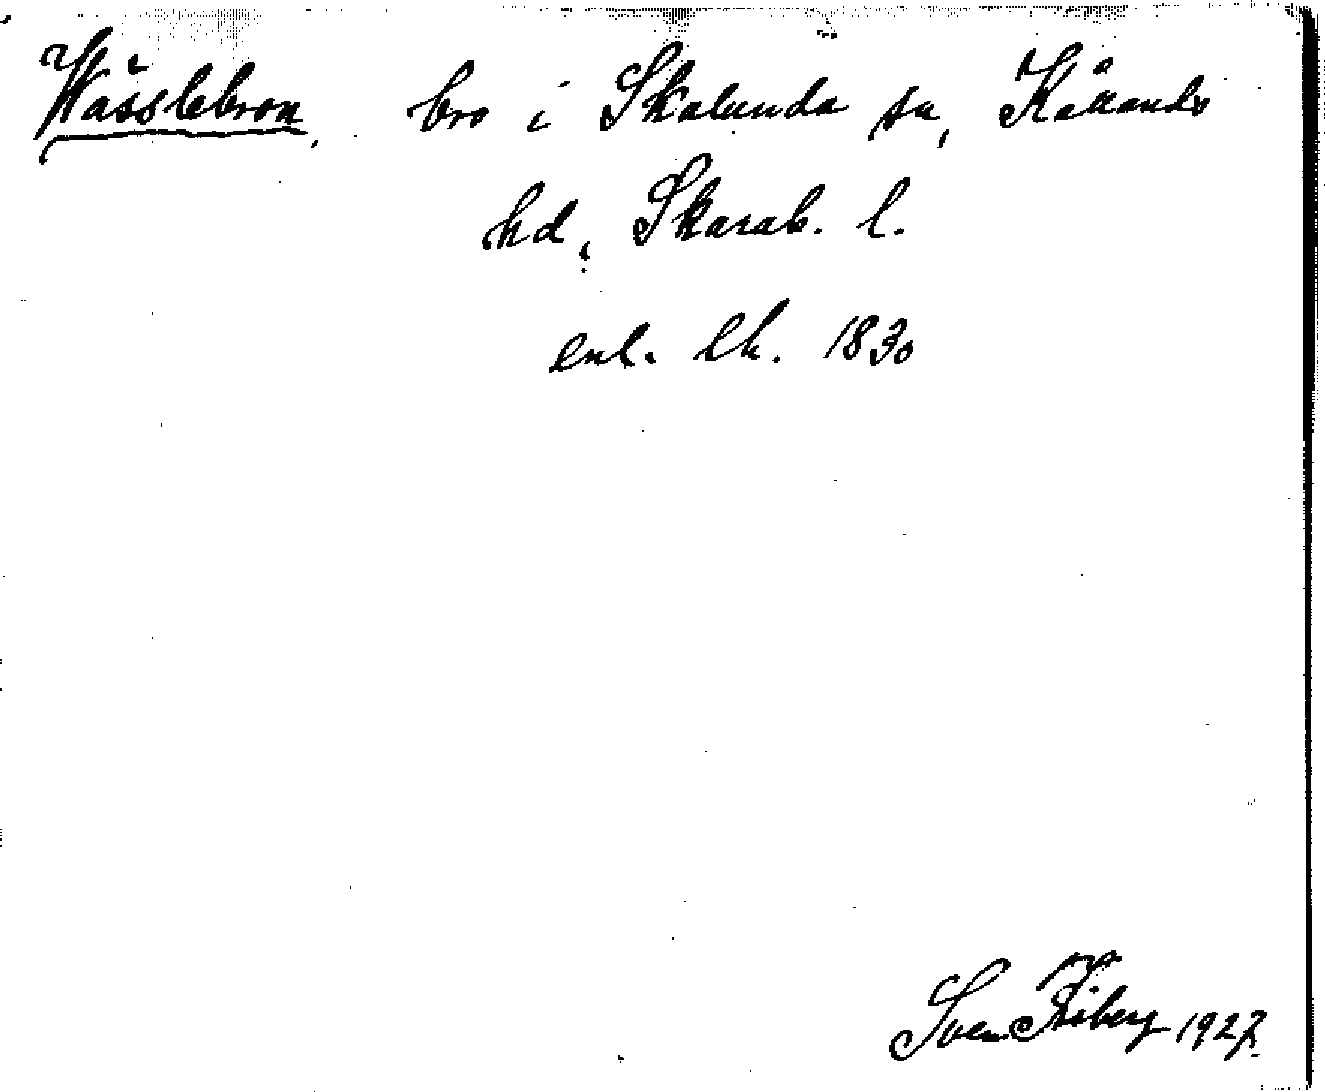 Wässlebron, bro i Skalunda sn, Kåkands
hd, Skarab. l.
enl. lk. 1830
Sven 1927.